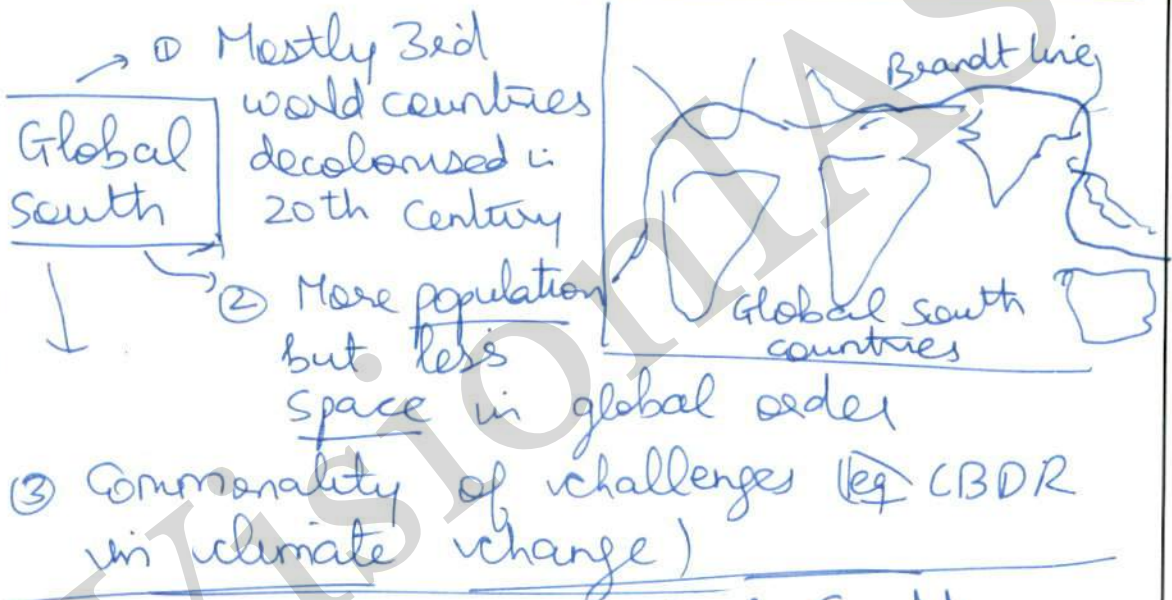 ① Mostly 3rd
world countries
decolonised in
20th Century
Global
South
② More population
but less
space in global order
③ Commonality of challenges (eg CBDR
in climate change)
Brandt line
Global South
countries
VisionIAS